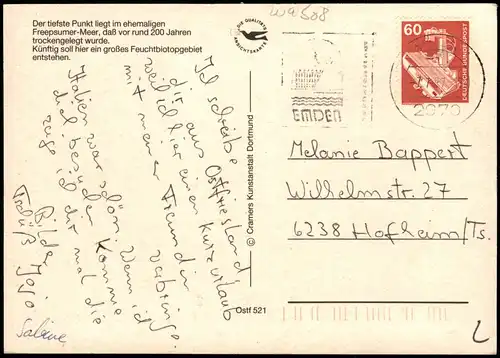 Der tiefste Punkt liegt im ehemaligen
Freepsumer-Meer, daß vor rund 200 Jahren
trockengelegt wurde.
Künftig soll hier ein großes Feuchtbiotopgebiet
entstehen.
DIE QUALITÄTS
ANSICHTSKARTE
Wa508
60
DEUTSCHE BUNDESPOST
EMDEN
2970
Ich schreibe
dir aus Ostfriesland
weil ich hier einen Kurzurlaub
mit meiner Freundin
verbringe.
Italien war schön. Wenn ich
dich besuchen komme
zeige ich dir mal die
Bilder
Tschüß Jojo
Sabine
© Cramers Kunstanstalt Dortmund
Ostf 521
Melanie Bappert
Wilhelmstr. 27
6238 Hofheim/Ts.